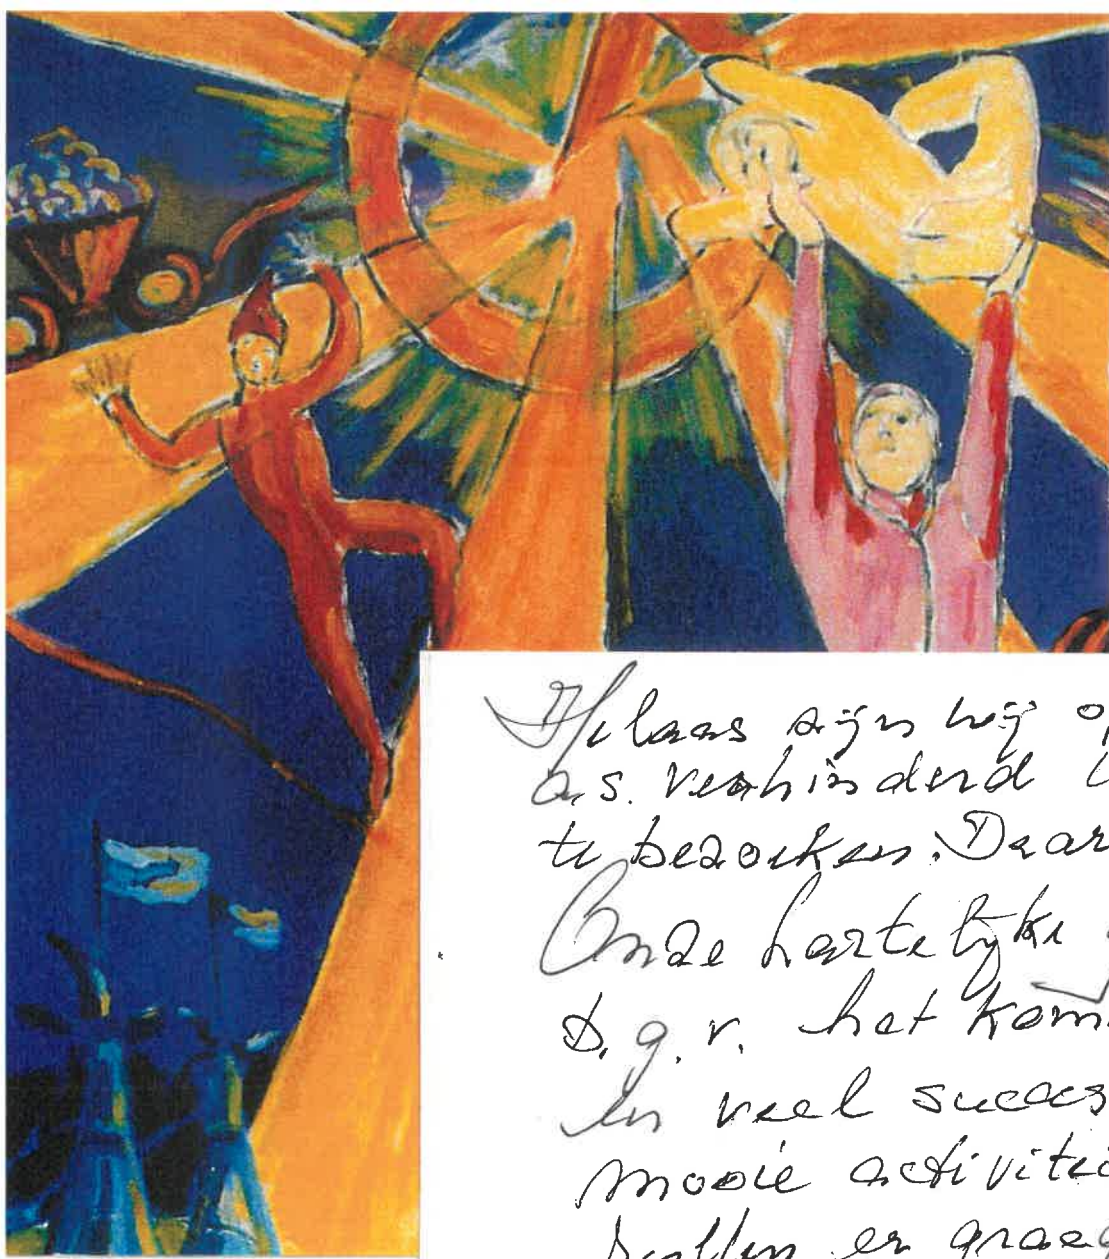 Helaas zijn wij op
a.s. verhinderd
te bezoeken. Daar
Onze hartelijke
b.g.v. het kom
en veel succes
mooie activitei
zullen er graag